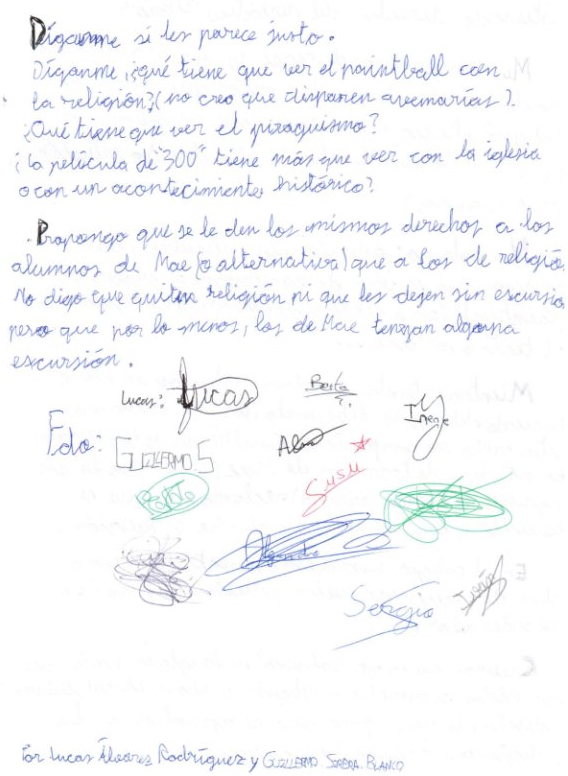 Díganme si les parece justo.
Díganme, ¿qué tiene que ver el paintball con
la religión? (no creo que disparen avemarías).
¿Qué tiene que ver el piraguismo?
¿la película de "300" tiene más que ver con la iglesia
o con un acontecimiento histórico?
Propongo que se le den los mismos derechos a los
alumnos de Mae (o alternativa) que a los de religión.
No digo que quiten religión ni que les dejen sin escursión
pero que por lo menos, los de Mae tengan alguna
escursión.
Lucas: Lucas
Berta
Irene
Fdo:
GUILLERMO.S
Alba
Susu
Alejandro
Sergio
Por Lucas Álvarez Rodríguez y GUILLERMO BLANCO